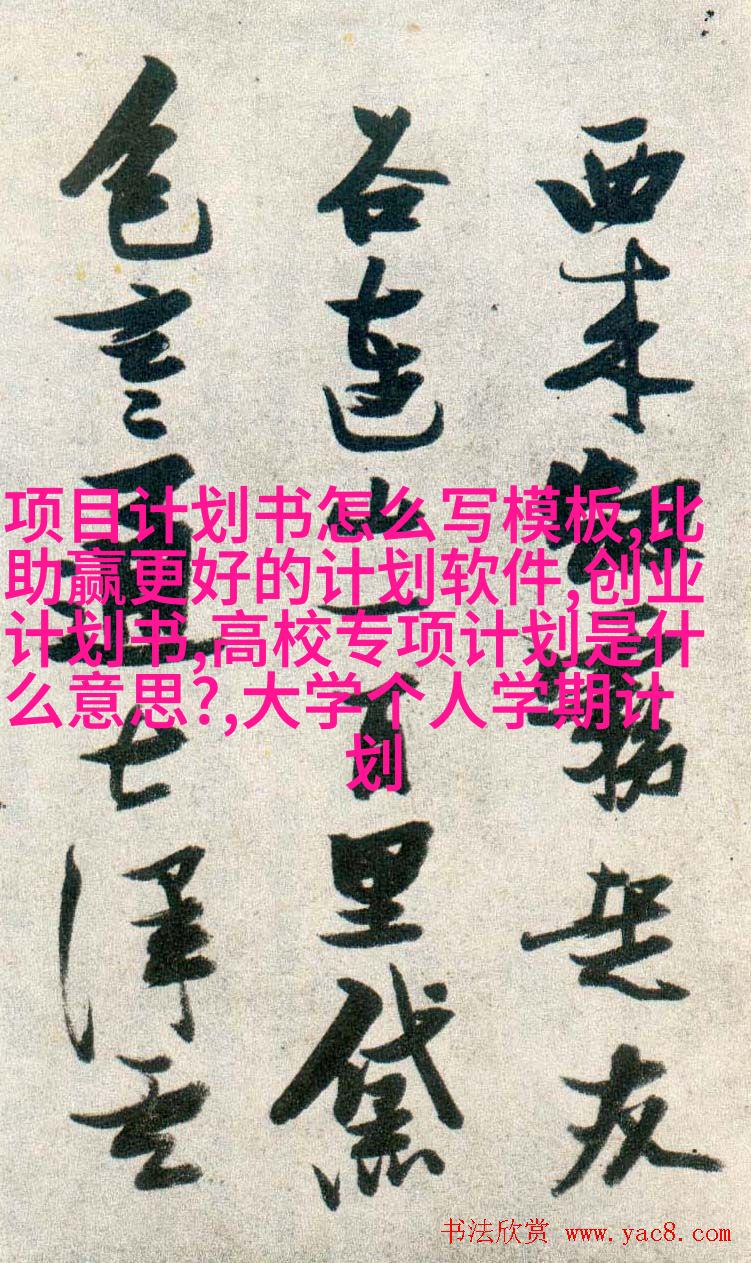 西来是友
谷连山一百里黛
色言通七泽云
项目计划书怎么写模板,比
助赢更好的计划软件,创业
计划书,高校专项计划是什
么意思?,大学个人学期计
划
书法欣赏 www.yac8.com